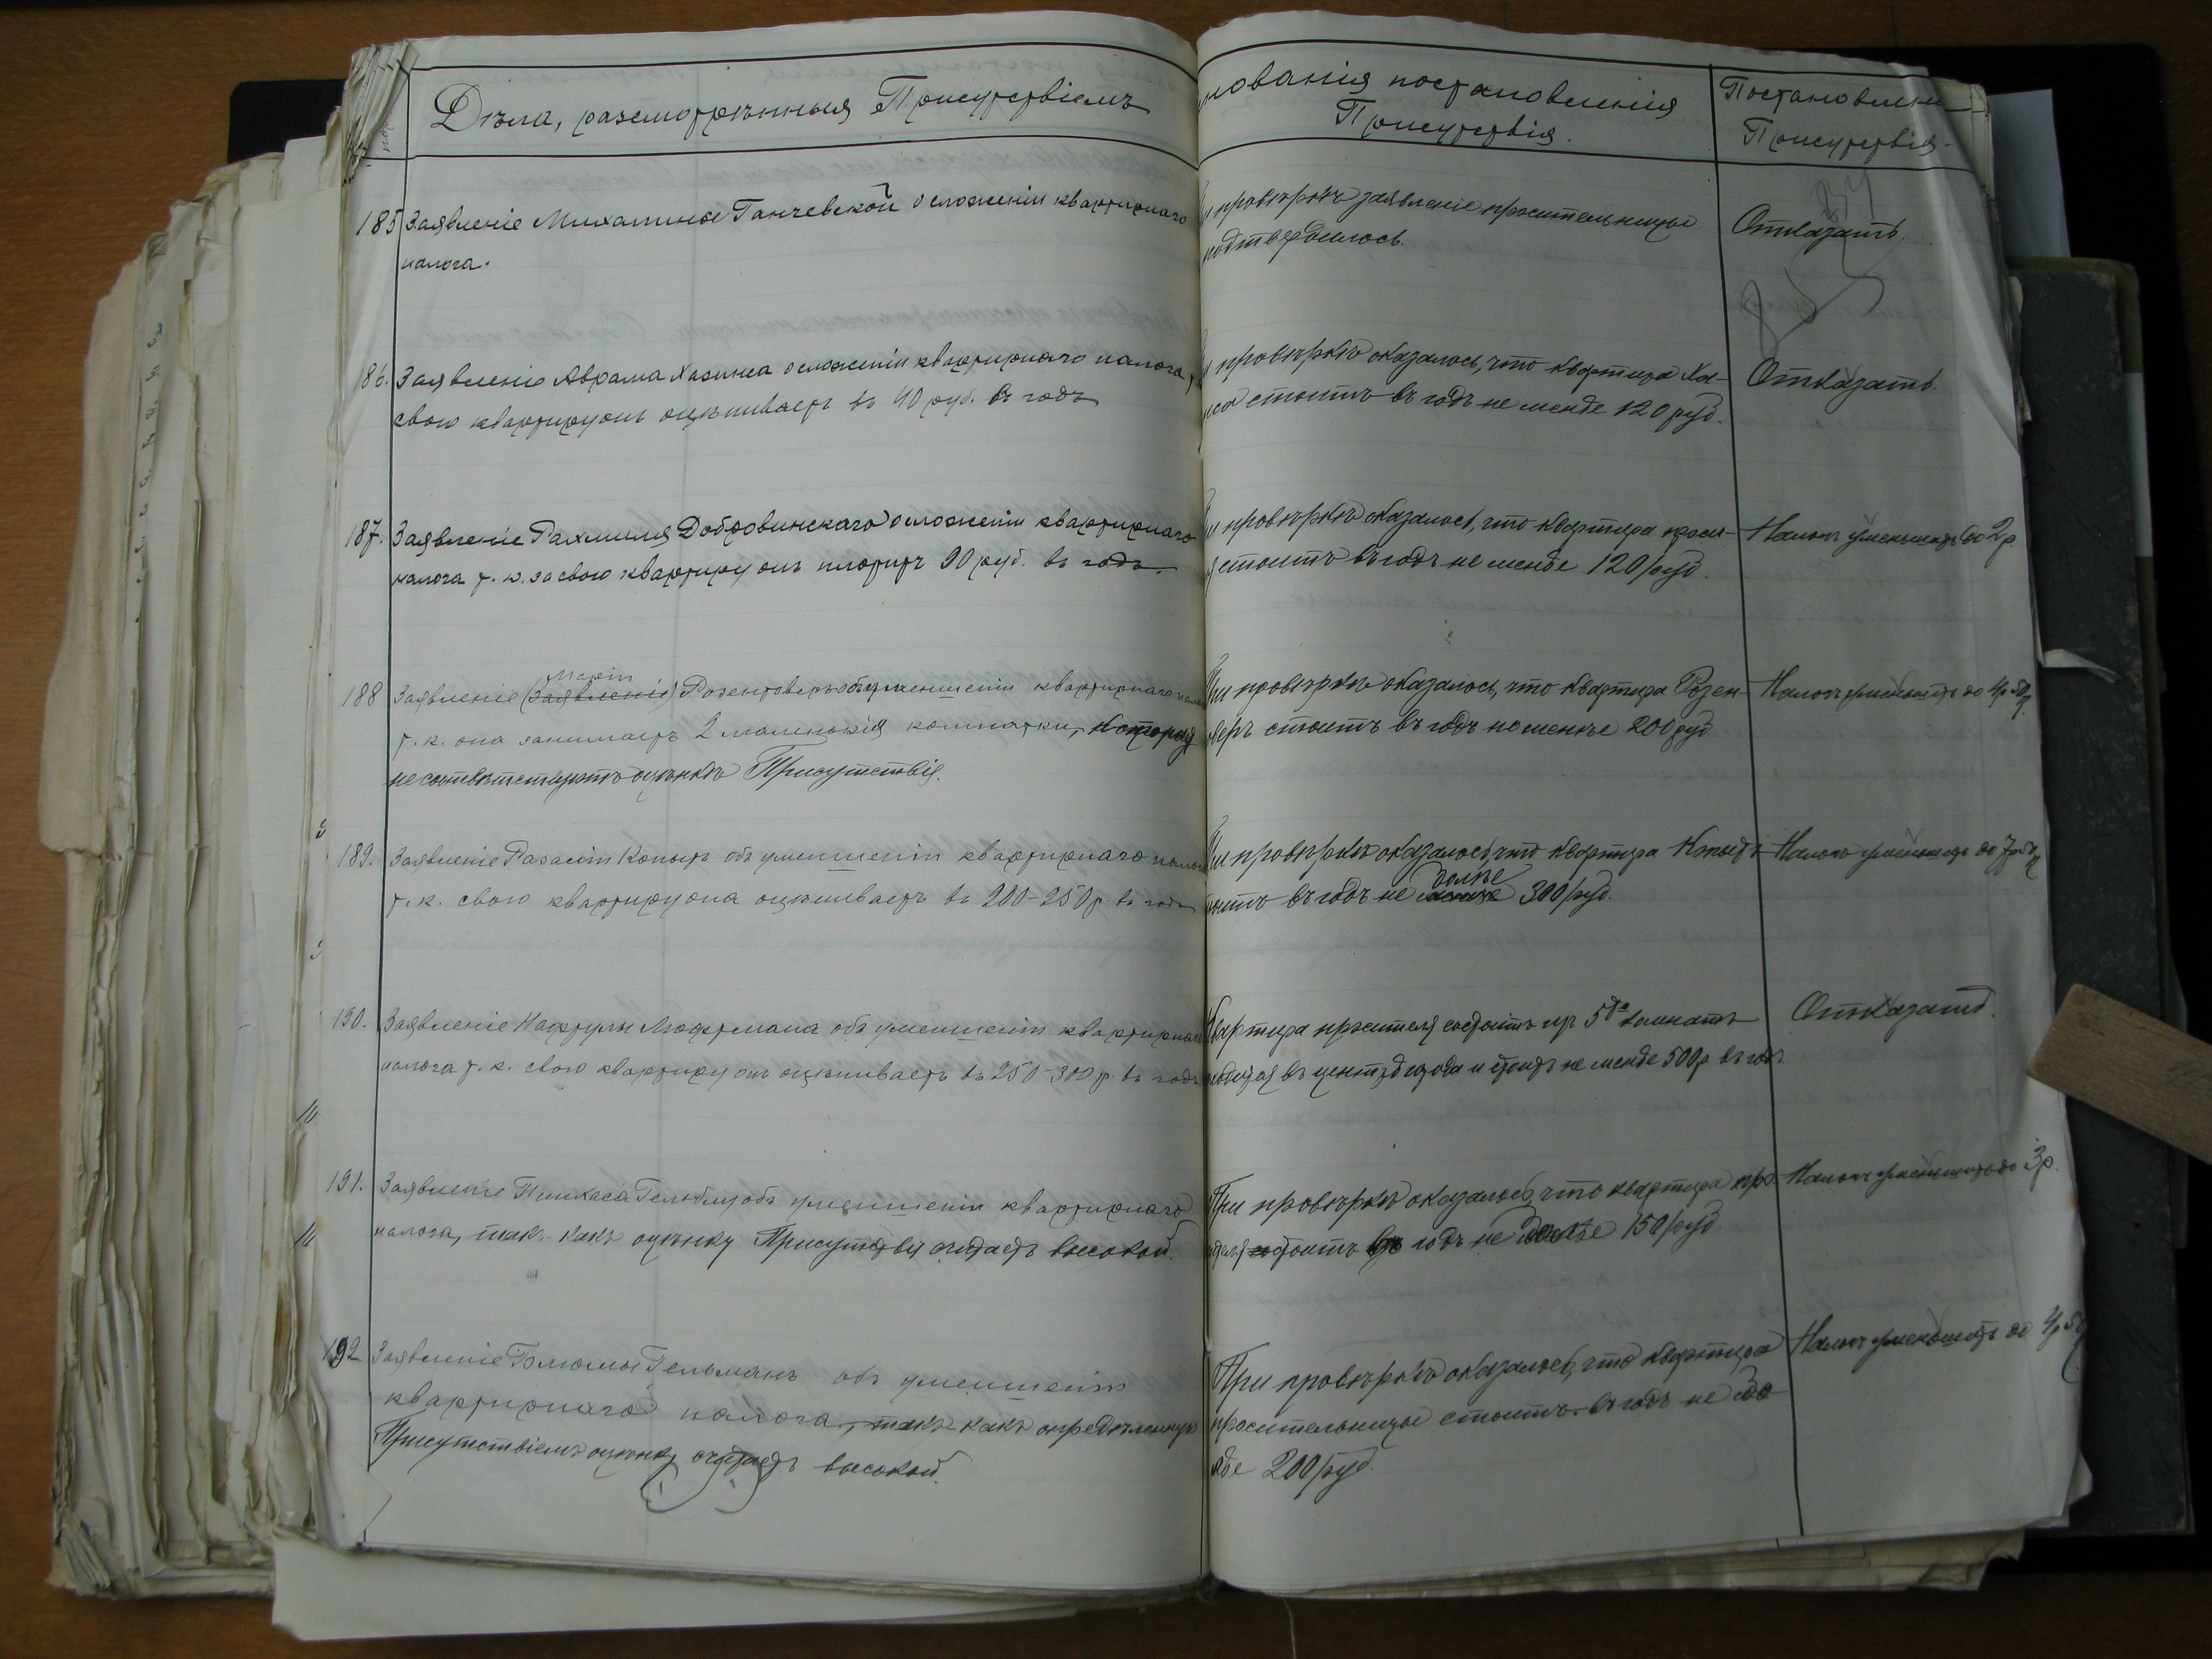 Дѣла, разсмотрѣнныя Присутствіемъ
нованія постановленія
Присутствія.
Постановлені
Присутствія.
185 Заявленіе Михалины Ганчевской о сложеніи квартирнаго
налога.
провѣркѣ заявленіе просительницы
подтвердилось.
Отказать.
186. Заявленіе Аврама Хазина о сложеніи квартирнаго налога,
свою квартиру онъ оцѣниваетъ въ 40 руб. въ годъ
провѣркѣ оказалось, что квартира Ха-
стоитъ въ годъ не менѣе 120 руб.
Отказать.
187. Заявленіе Рахмиля Добровинскаго о сложеніи квартирнаго
налога т. к. за свою квартиру онъ платитъ 90 руб. въ годъ.
провѣркѣ оказалось, что квартира проси-
стоитъ въ годъ не менѣе 120 руб.
Налогъ уменьшить до 2 р.
188 Заявленіе (Заявленіе) Маріи Розентоверъ объ уменшеніи квартирнаго
т. к. она занимаетъ 2 маленькія комнатки, которыя
не соотвѣтствуютъ оцѣнкѣ Присутствія.
При провѣркѣ оказалось, что квартира Розен-
веръ стоитъ въ годъ не менѣе 200 руб
Налогъ уменьшить до 4 р 50
189. Заявленіе Разаліи Копытъ объ уменшеніи квартирнаго
т. к. свою квартиру она оцѣниваетъ въ 200-250 р. въ годъ
При провѣркѣ оказалось, что квартира Копытъ
въ годъ не болѣе 300 руб.
Налогъ уменьшить до 7
190. Заявленіе Нафтулы Лифтмана объ уменшеніи квартирнаго
налога т. к. свою квартиру онъ оцѣниваетъ въ 250-300 р. въ годъ
Квартира просителя состоитъ изъ 5 комнатъ
въ центрѣ города и стоитъ не менѣе 500 р въ годъ
Отказать.
191. Заявленіе Пинхаса объ уменшеніи квартирнаго
налога, такъ какъ оцѣнку Присутствія считаетъ высокой.
При провѣркѣ оказалось, что квартира про-
стоитъ въ годъ не болѣе 150 руб.
Налогъ уменьшить до 3 р.
192 Заявленіе Блюмы Гельманъ объ уменшеніи
квартирнаго налога, такъ какъ опредѣленную
Присутствіемъ оцѣнку считаетъ высокой.
При провѣркѣ оказалось, что квартира
просительницы стоитъ въ годъ не бо-
лѣе 200 руб.
Налогъ уменьшить до 4 р 50